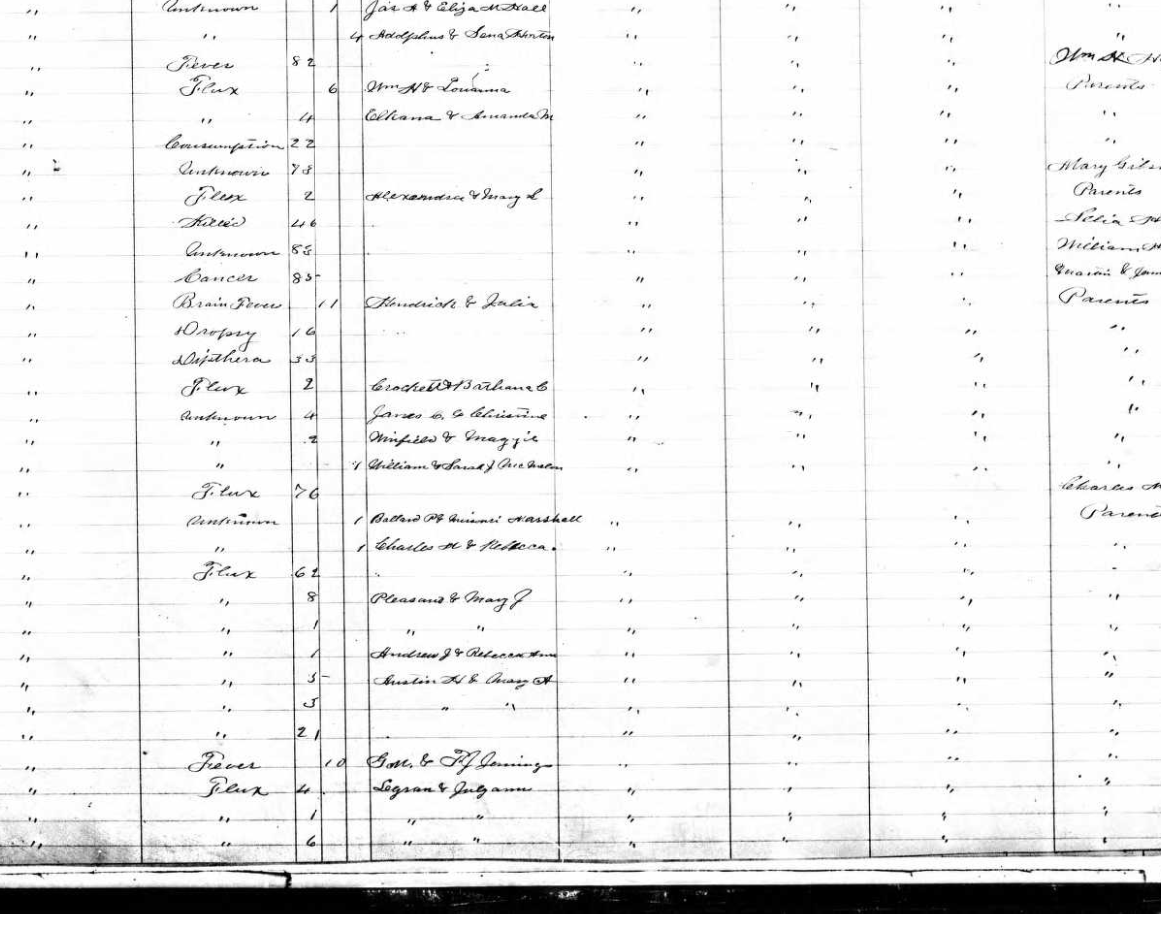 " Unknown 1 Jas A & Eliza M Hall " " " "
" " 4 Adolphus & Sena " " " "
" Fever 82 " " " Wm H
" Flux 6 Wm H & Louanna " " " Parents
" " 4 Elkana & Amanda M " " " "
" Consumption 22 " " " "
" Unknown 78 " " " Mary
" Flux 2 Alexander & Mary L " " " Parents
" Killed 46 " " "
" Unknown 88 " " " William H
" Cancer 85 " " " &
" Brain Fever 11 Hendrick & Julia " " " Parents
" Dropsy 16 " " " "
" Dipthera 33 " " " "
" Flux 2 Crockett & Barbara C " " " "
" Unknown 4 James C. & Christine " " " "
" " 2 Winfield & Maggie " " " "
" " William & Sarah J " " " "
" Flux 76 Charles
" Unknown 1 Ballard P & Missouri Marshall " " " Parents
" " 1 Charles M & Rebecca " " " "
" Flux 62 " " " "
" " 8 Pleasant & Mary J " " " "
" " 1 " " " " " "
" " 1 Andrew J & Rebecca Ann " " " "
" " 5 Austin H & Mary A " " " "
" " 3 " " " " " "
" " 21 " " " "
" Fever 10 & Jennings " " " "
" Flux 4 Legran & Julyann " " " "
" " 1 " " " " " "
" " 6 " " " " " "